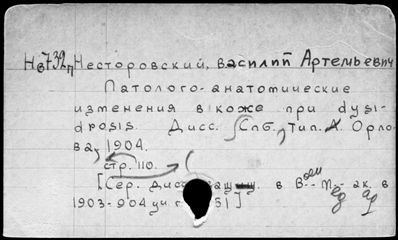 Нв732п Несторовский, Василий Артемьевич
Патолого-анатомические
изменения в коже при dysi-
drosis. Дисс. Спб., Тип. А. Орло-
ва, 1904.
стр. 110.
[Сер. дисс. в В. ак. в
1903-904 уч. г. 51]